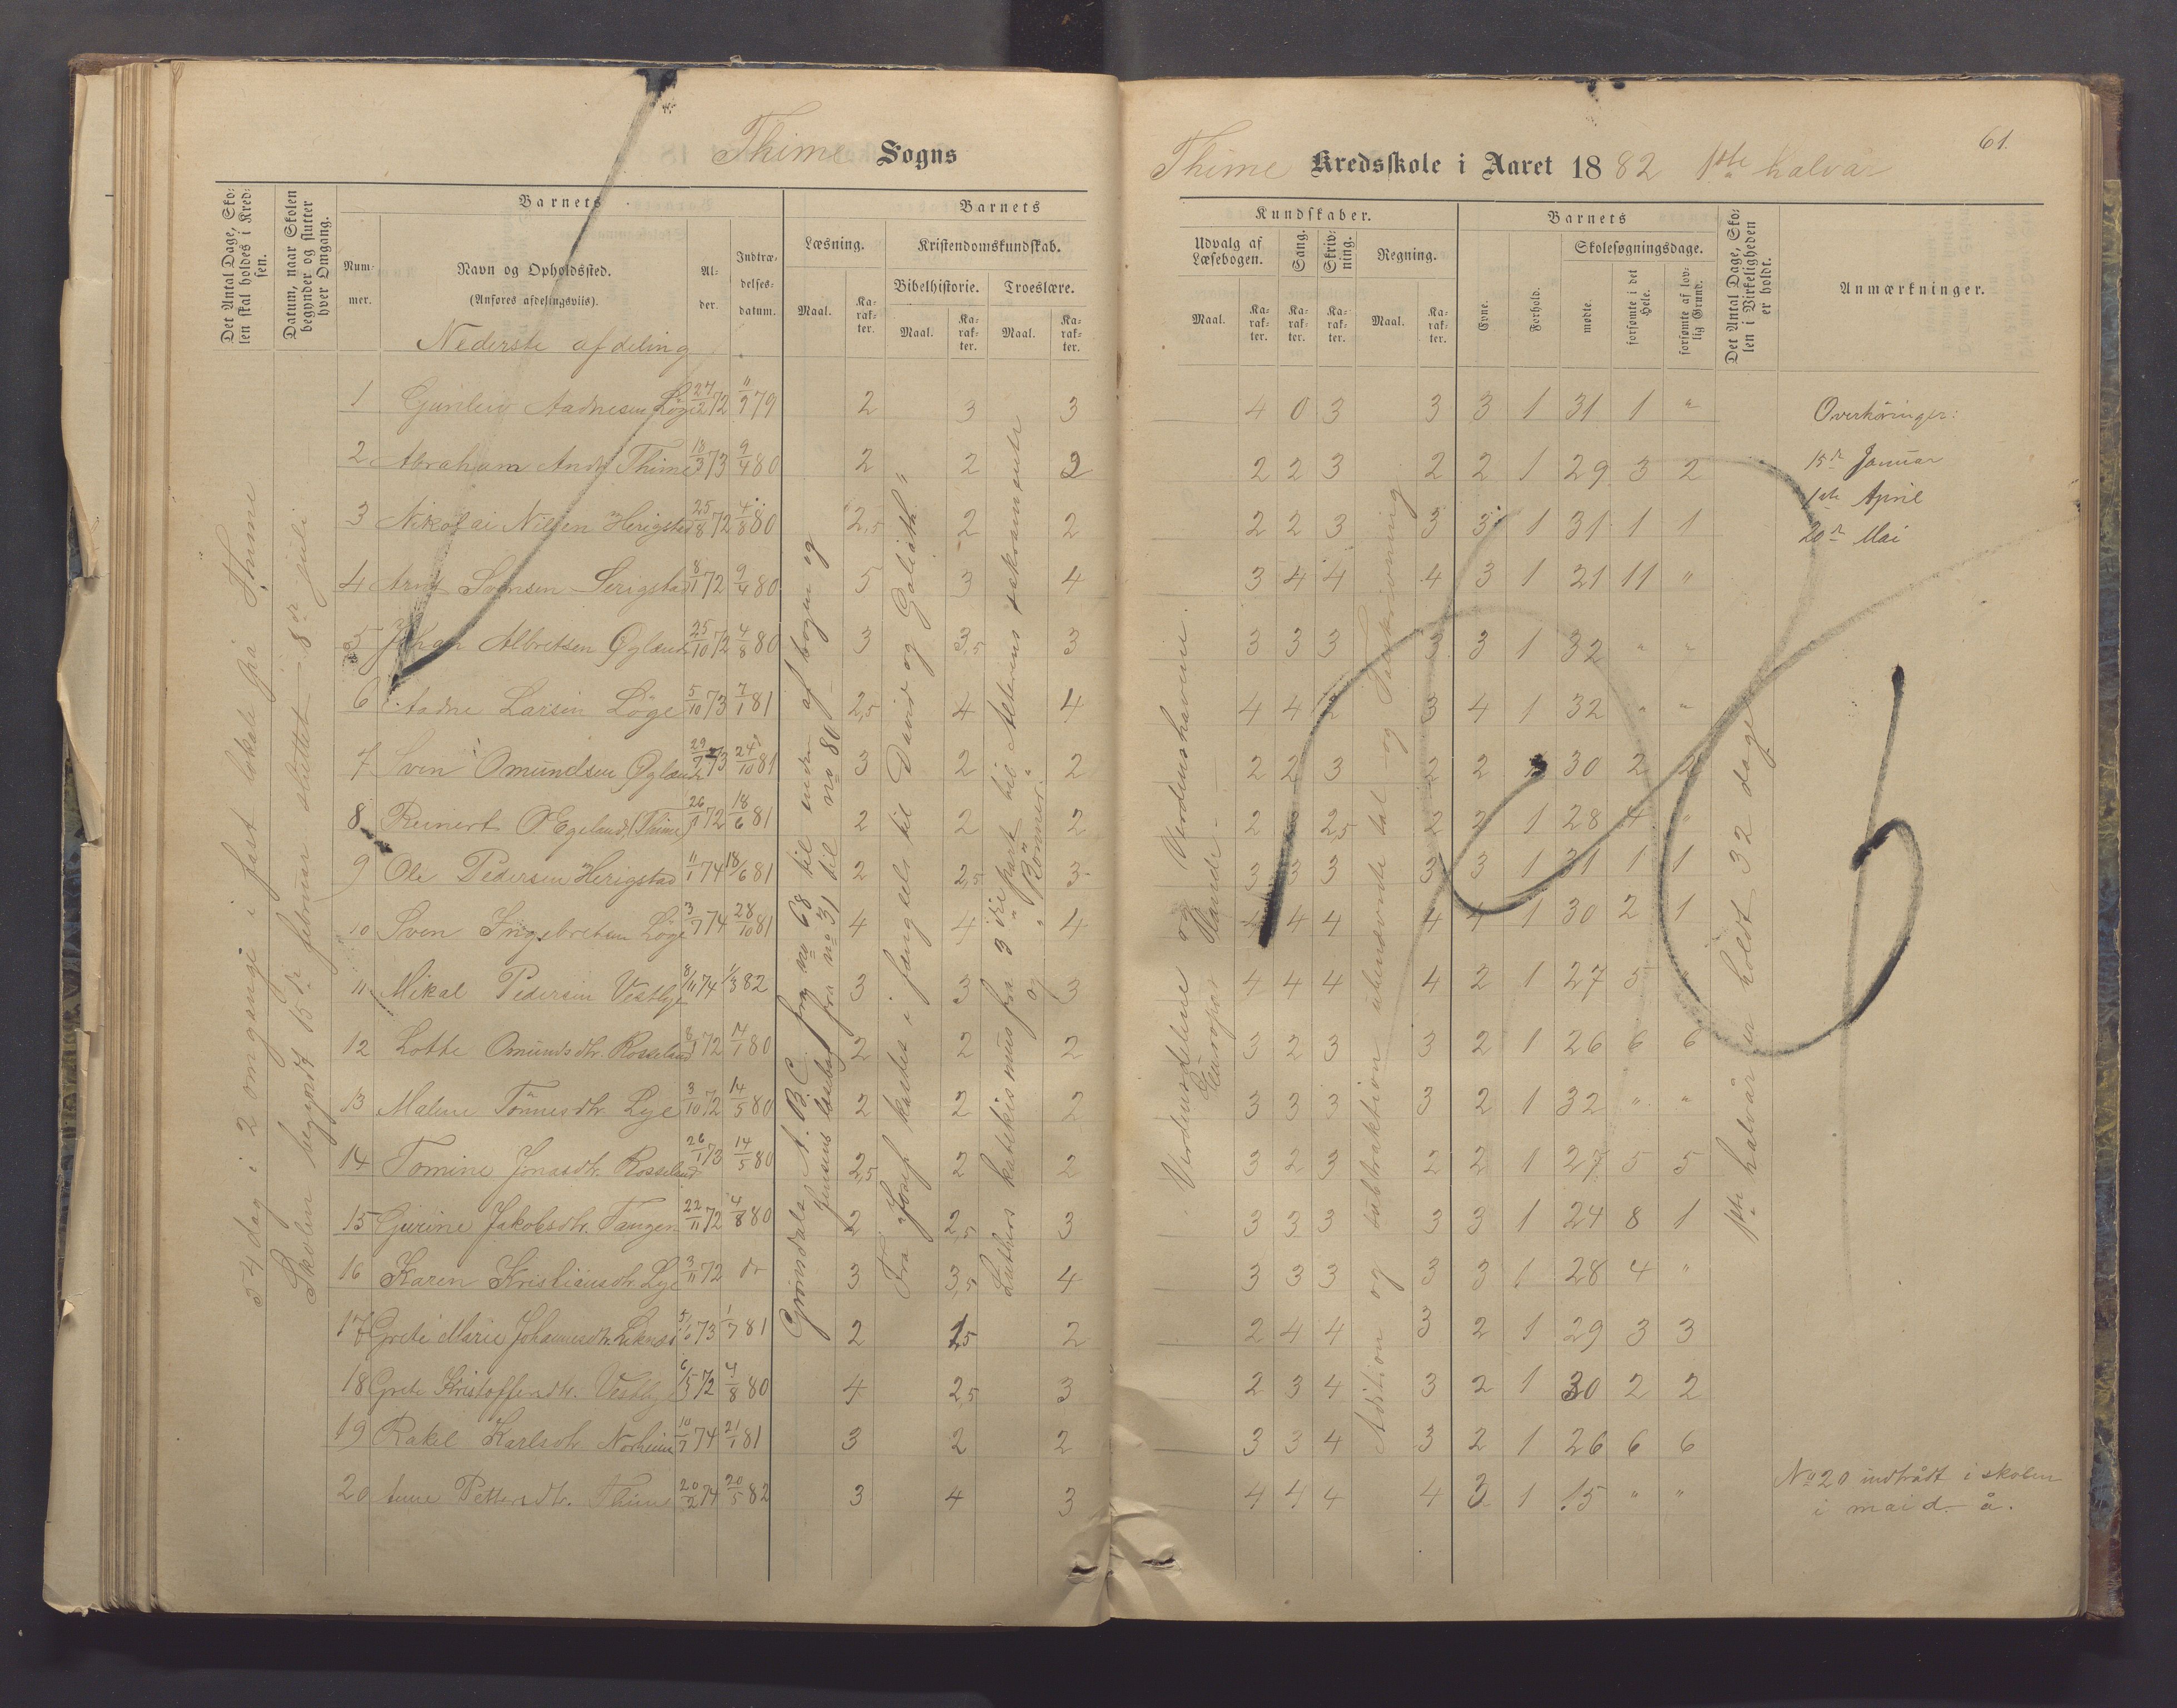 61.
Thime Sogns
Thime Kredsskole i Aaret 1882 1ste halvår
Det Antal Dage, Skolen skal holdes i Kredsen.
Datum, naar Skolen begynder og slutter hver Omgang.
Barnets
Nummer.
Navn og Opholdssted.
(Anføres afdelingsviis).
Alder.
Indtrædelsesdatum.
Barnets
Læsning.
Maal.
Karakter.
Kristendomskundskab.
Bibelhistorie.
Maal.
Karakter.
Troeslære.
Maal.
Karakter.
Kundskaber.
Udvalg af Læsebogen.
Maal.
Karakter.
Sang.
Karakter.
Skrivning.
Karakter.
Regning.
Maal.
Karakter.
Barnets
Evne.
Forhold.
Skolesøgningsdage.
mødte.
forsømte i det Hele.
forsømte af lovlig Grund.
Det Antal Dage, Skolen i Virkeligheden er holdt.
Anmærkninger.
Nederste afdeling
1 Gunleiv Aadnesen Løge 27/2 72 11/9 79 2 3 3 4 0 3 3 3 1 31 1 "
2 Abraham Andr. Thime 18/3 73 9/4 80 2 2 2 2 2 3 2 2 1 29 3 2
3 Nikolai Nilsen Herigstad 25/8 72 4/8 80 2,5 2 2 2 2 3 3 3 1 31 1 1
4 Arnt Svensen Serigstad 8/1 72 9/4 80 5 3 4 3 4 4 4 3 1 21 11 "
5 Johan Albretsen Øgland 25/10 72 4/8 80 3 3,5 3 3 3 3 3 3 1 32 " "
6 Aadne Larsen Löge 5/10 73 7/1 81 2,5 4 4 4 4 2 3 4 1 32 " "
7 Sven Omundsen Øgland 73 24/10 81 3 2 2 2 2 3 2 2 1 30 2 2
8 Reinert O Egeland (Thime) 26/1 72 18/6 81 2 2 2 2 3 2,5 2 2 1 28 4 "
9 Ole Pedersen Herigstad 11/1 74 18/6 81 2 2,5 3 3 3 3 3 3 1 31 1 1
10 Sven Ingebretsen Löge 3/7 74 28/10 81 4 4 4 4 4 4 4 4 1 30 2 1
11 Mikal Pedersen Vestlye 8/11 74 1/3 82 3 3 3 4 4 4 4 2 1 27 5 "
12 Lotte Omundsdtr. Rosseland 8/1 72 80 2 2 2 3 2 3 3 2 1 26 6 6
13 Malene Tönnesdtr. Lye 3/10 72 14/5 80 2 2 2 3 3 3 3 2 1 32 " "
14 Tomine Jonasdtr. Rosseland 26/1 73 14/5 80 2,5 2 2 3 2 3 2 2 1 27 5 5
15 Gurine Jakobsdtr. Tangen 22/11 72 4/8 80 2 2,5 3 3 3 3 3 3 1 24 8 1
16 Karen Kristiansdtr. Lye 3/11 72 dr 3 3,5 4 3 3 3 3 3 1 28 4 "
17 Grete Marie Johannesdtr. 73 1/7 81 2 1,5 2 2 4 4 3 2 1 29 3 3
18 Grete Kristoffersdtr. Vestlye 6/5 72 4/8 80 4 2,5 3 2 3 4 3 2 1 30 2 2
19 Rakel Karlsdtr. Norheim 10/7 74 21/1 81 3 2 2 3 3 4 3 2 1 26 6 6
20 Anne Pettersdtr. Thime 20/2 74 20/5 82 3 4 3 4 4 4 4 3 1 15 " "
34 dag i 2 omgange i fast lokale på Thime
Skolen begyndt 15de februar sluttet 8de juli
Grönsdals A.B.C. fra no 68 til enden af bogen og
Jensens læsebog fra no 31 til no 80
Fra "Josef kastes i fængsel" til "David og Goliath."
Luthers katekismus fra 3die part til "Alterens sakramente"
og "Bönner."
Verdensdelene og Verdenshavene.
Europas Lande.
Adition og subtraktion ubenævnte tal og Talskrivning
1ste halvår er holdt 32 dage
Overhöringer:
15de Januar
1ste April
20de Mai
No 20 indtrådt i skolen
i mai d. å.